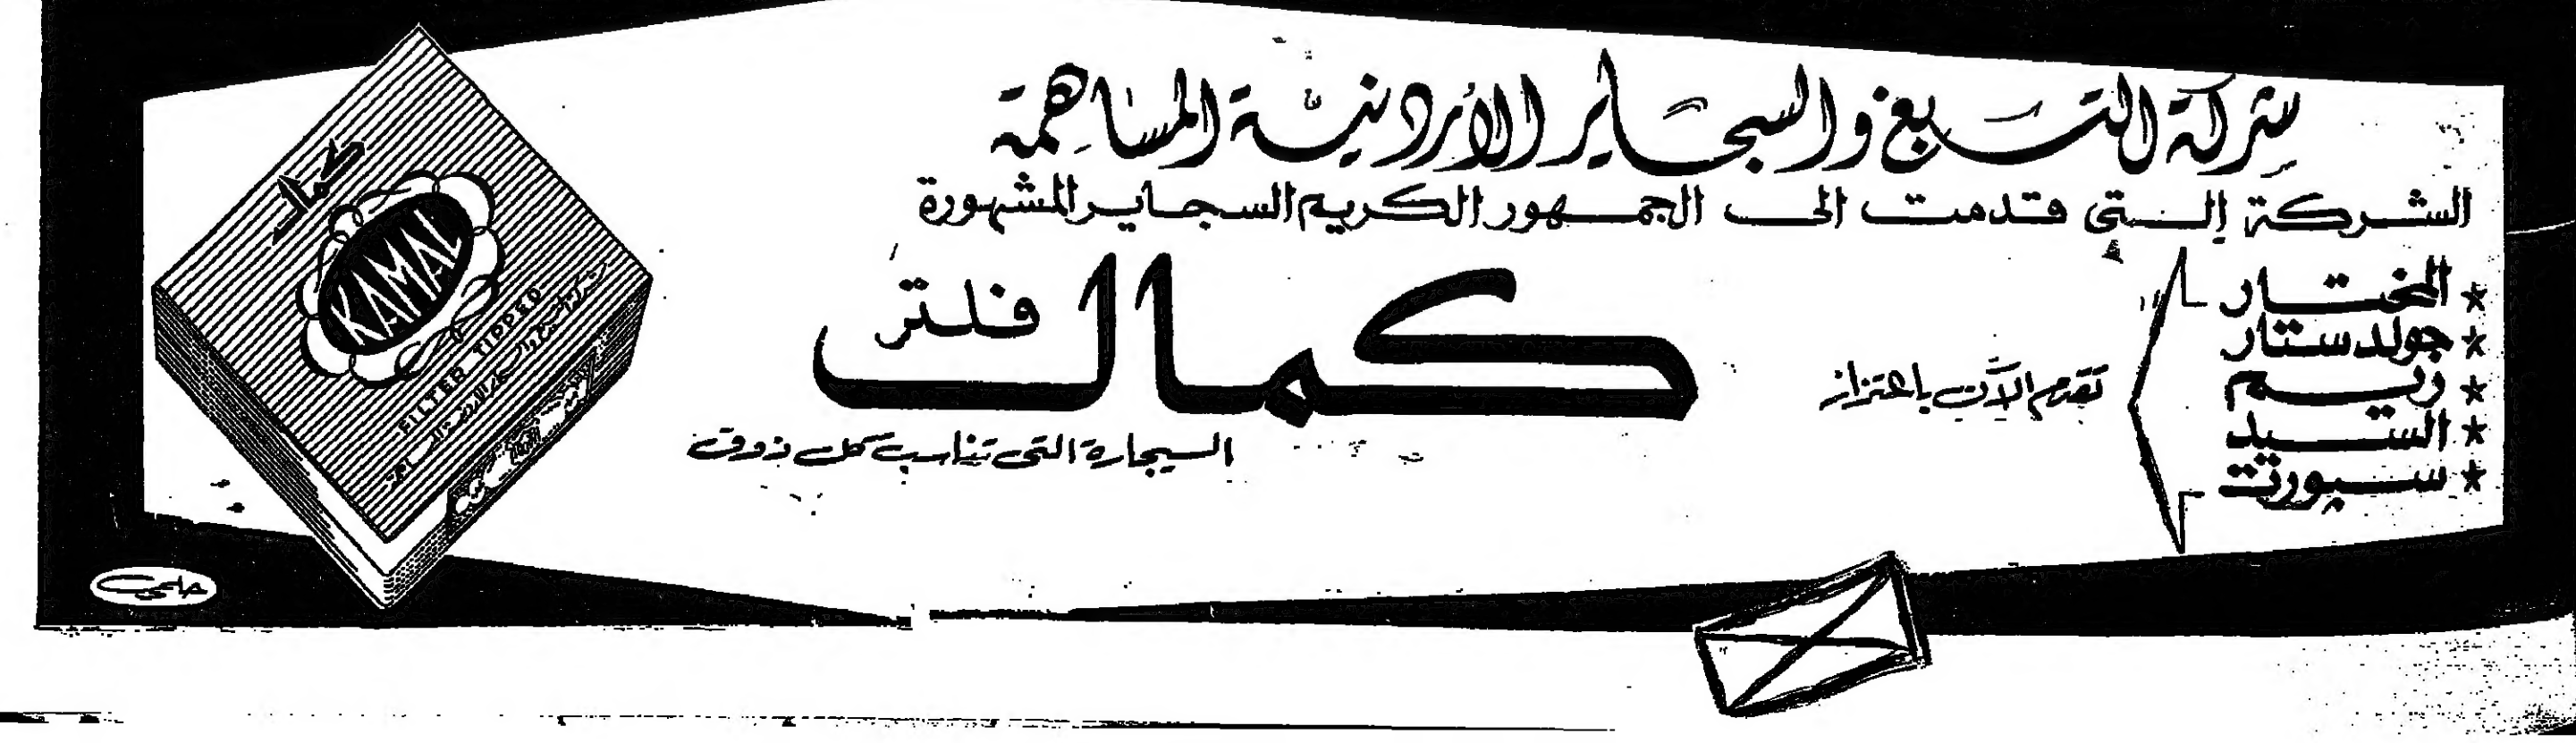 شركة التبغ والسجاير الأردنية المساهمة
الشركة التي قدمت الى الجمهور الكريم السجاير المشهورة
* المختار
* جولد ستار
* ريم
* السيد
* سبورت
تقدم الآن باعتزاز
كمال فلتر
السيجارة التي تناسب كل ذوق
كمال
KAMAL
FILTER TIPPED
حلمي